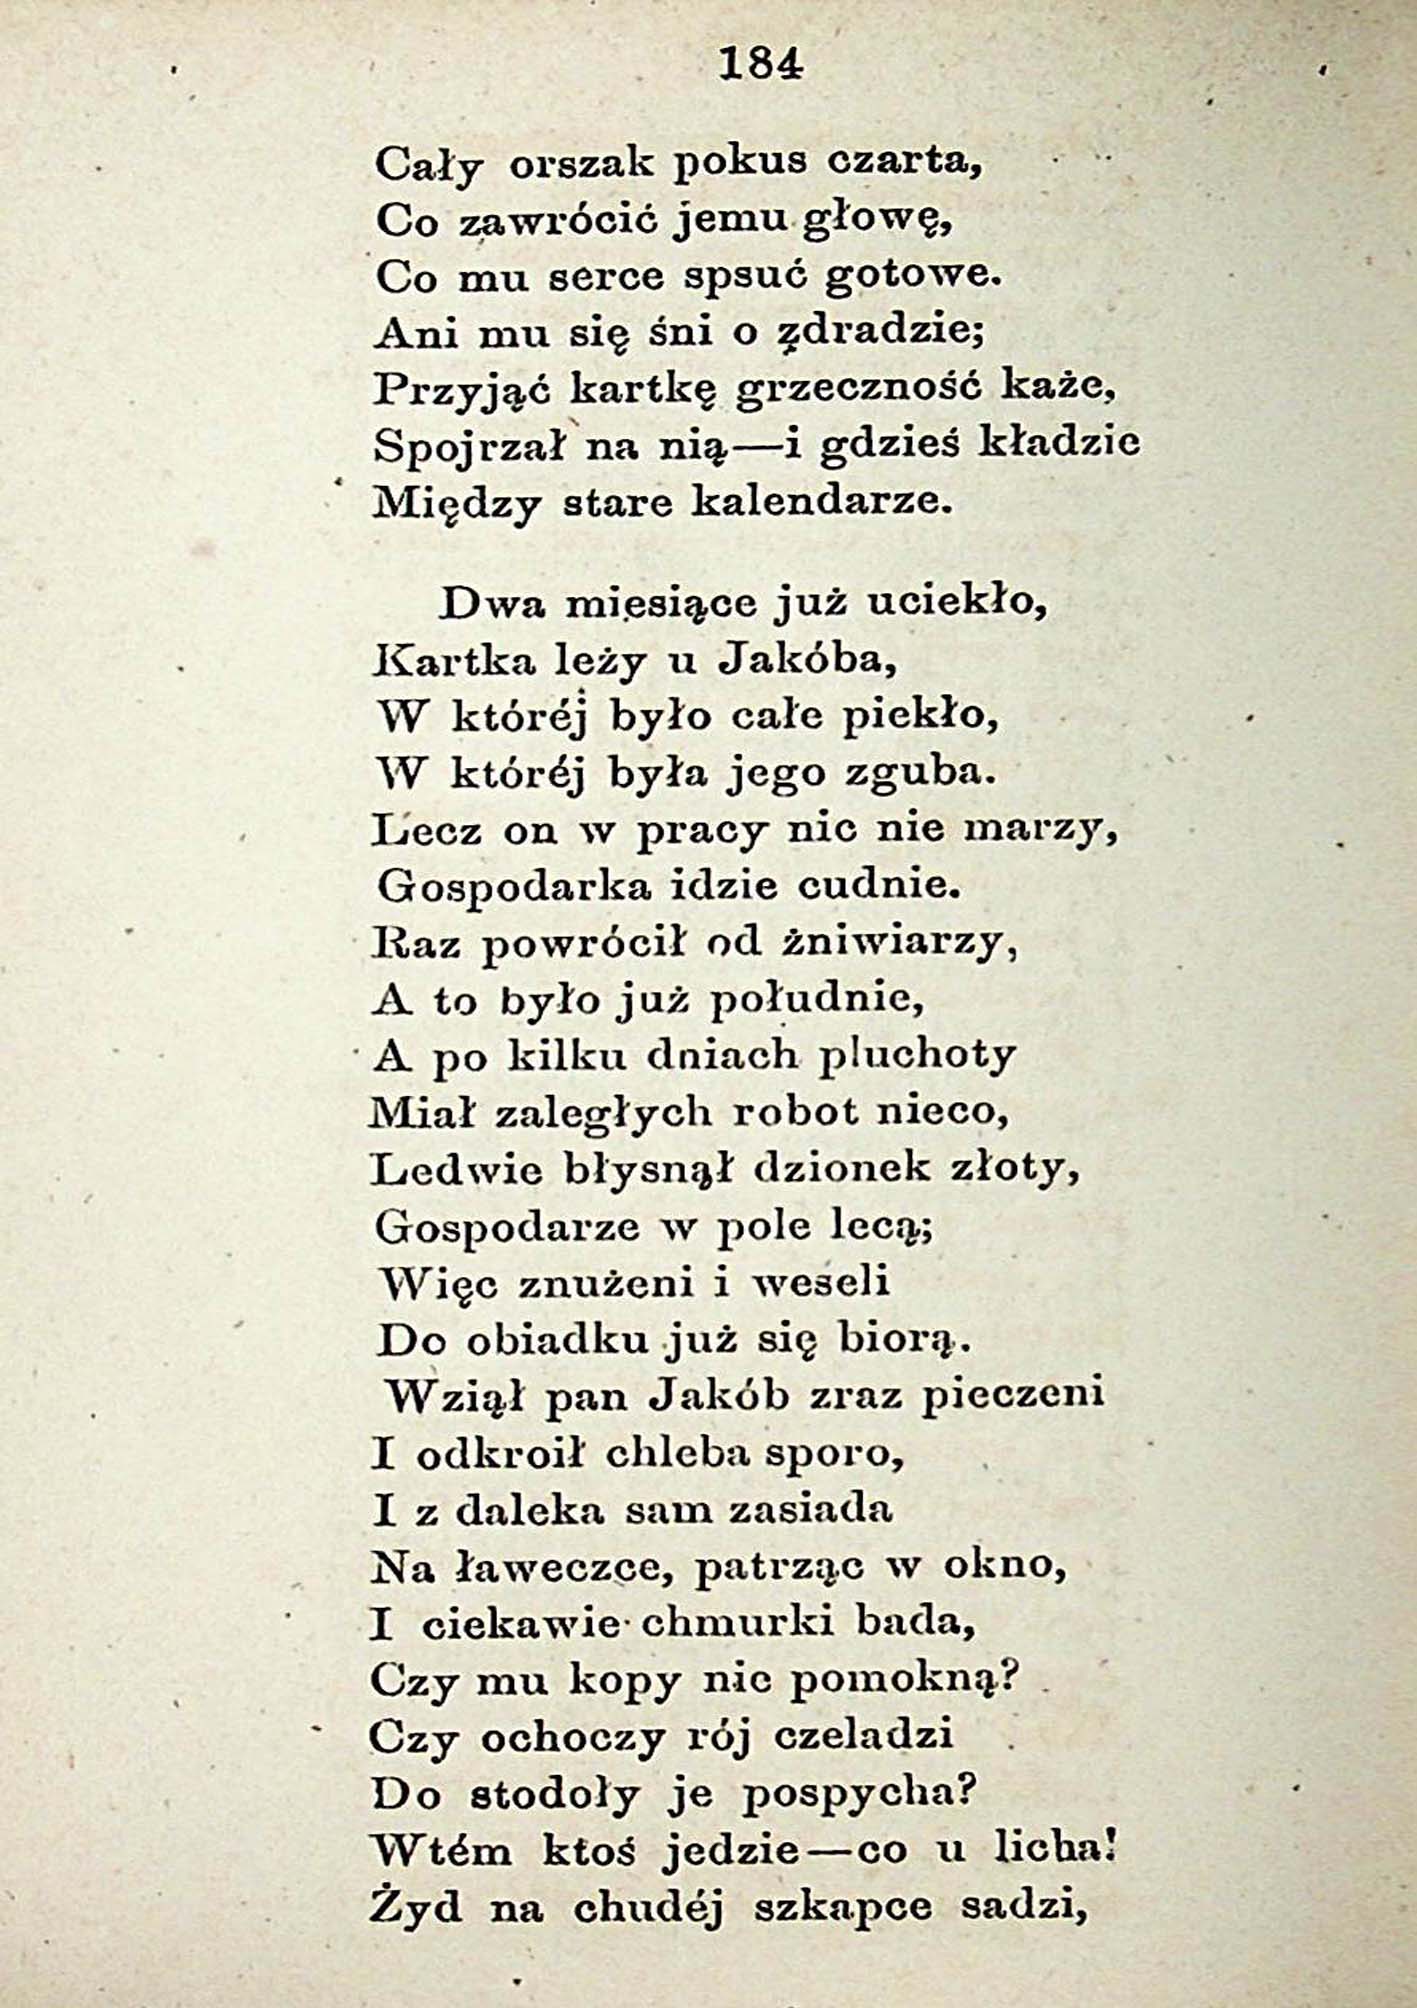 184
Cały orszak pokus czarta,
Co zawrócić jemu głowę,
Co mu serce spsuć gotowe.
Ani mu się śni o zdradzie;
Przyjąć kartkę grzeczność każe,
Spojrzał na nią—i gdzieś kładzie
Między stare kalendarze.
Dwa miesiące już uciekło,
Kartka leży u Jakóba,
W któréj było całe piekło,
W któréj była jego zguba.
Lecz on w pracy nic nie marzy,
Gospodarka idzie cudnie.
Raz powrócił od żniwiarzy,
A to było już południe,
A po kilku dniach pluchoty
Miał zaległych robot nieco,
Ledwie błysnął dzionek złoty,
Gospodarze w pole lecą;
Więc znużeni i weseli
Do obiadku już się biorą.
Wziął pan Jakób zraz pieczeni
I odkroił chleba sporo,
I z daleka sam zasiada
Na ławeczce, patrząc w okno,
I ciekawie chmurki bada,
Czy mu kopy nie pomokną?
Czy ochoczy rój czeladzi
Do stodoły je pospycha?
Wtém ktoś jedzie—co u licha!
Żyd na chudéj szkapce sadzi,